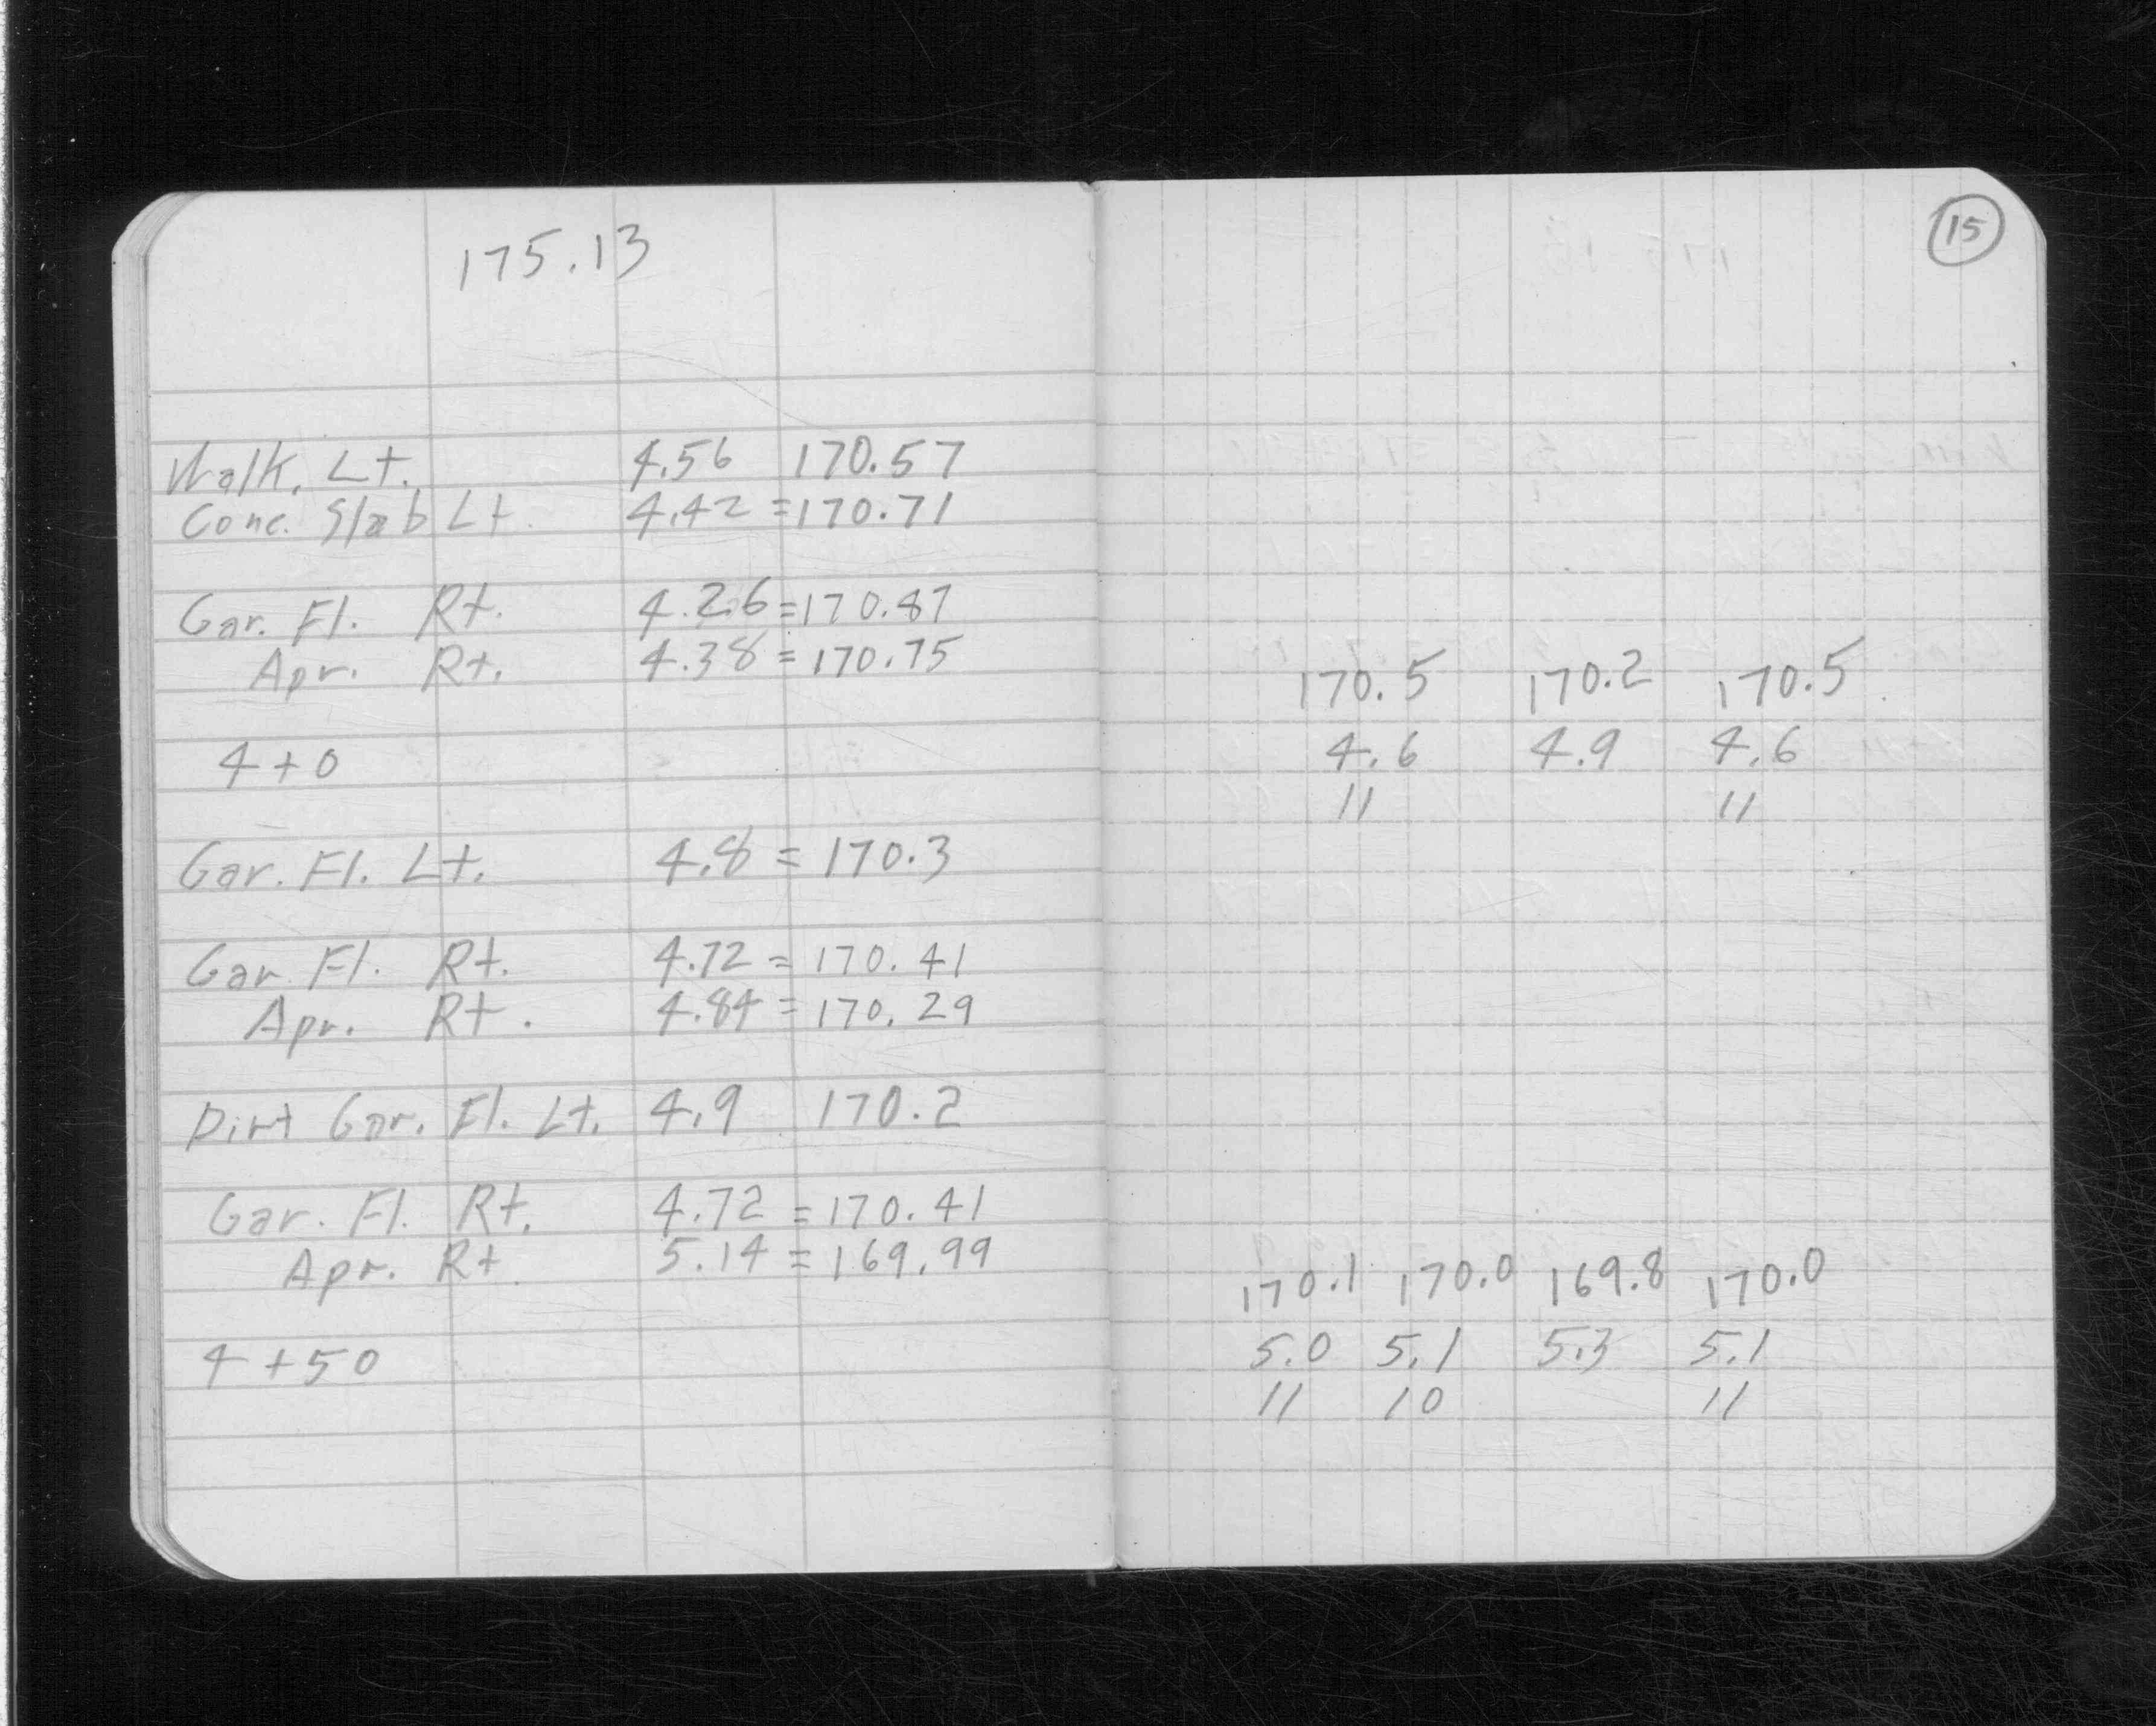 175.13
Walk. Lt. 4.56 170.57
Conc. Slab Lt. 4.42 = 170.71
Gar. Fl. Rt. 4.26 = 170.87
Apr. Rt. 4.38 = 170.75
4 + 0
Gar. Fl. Lt. 4.8 = 170.3
Gar. Fl. Rt. 4.72 = 170.41
Apr. Rt. 4.84 = 170.29
Dirt Gar. Fl. Lt. 4.9 170.2
Gar. Fl. Rt. 4.72 = 170.41
Apr. Rt. 5.14 = 169.99
4 + 50
15
170.5 170.2 170.5
4.6 4.9 4.6
11 11
170.1 170.0 169.8 170.0
5.0 5.1 5.3 5.1
11 10 11